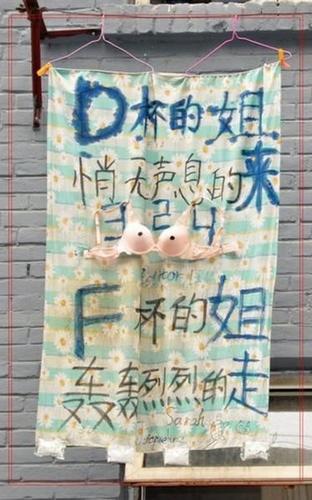 D杯的姐来
悄无声息的
324
F杯的姐走
轰轰烈烈的
Sarah